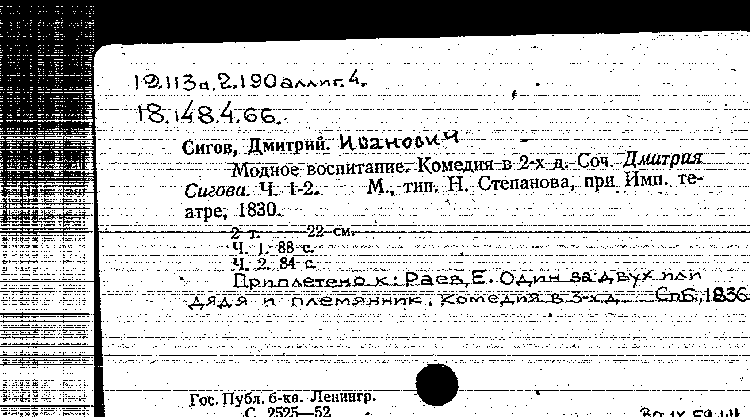 19.113а.2.190 аллиг. 4.
18.148.4.66.
Сигов, Дмитрий. Иванович
Модное воспитание. Комедия в 2-х д. Соч. Дмитрия
Сигова. Ч. 1-2. М., тип. Н. Степанова, при Имп. те-
атре, 1830.
2 т. 22 см.
Ч. 1. 88 с.
Ч. 2. 84 с.
Приплетено к: Раев, Е. Один за двух или
дядя и племянник. Комедия в 3-х д. Спб., 1836
Гос. Публ. б-ка. Ленингр.
С 2525—52